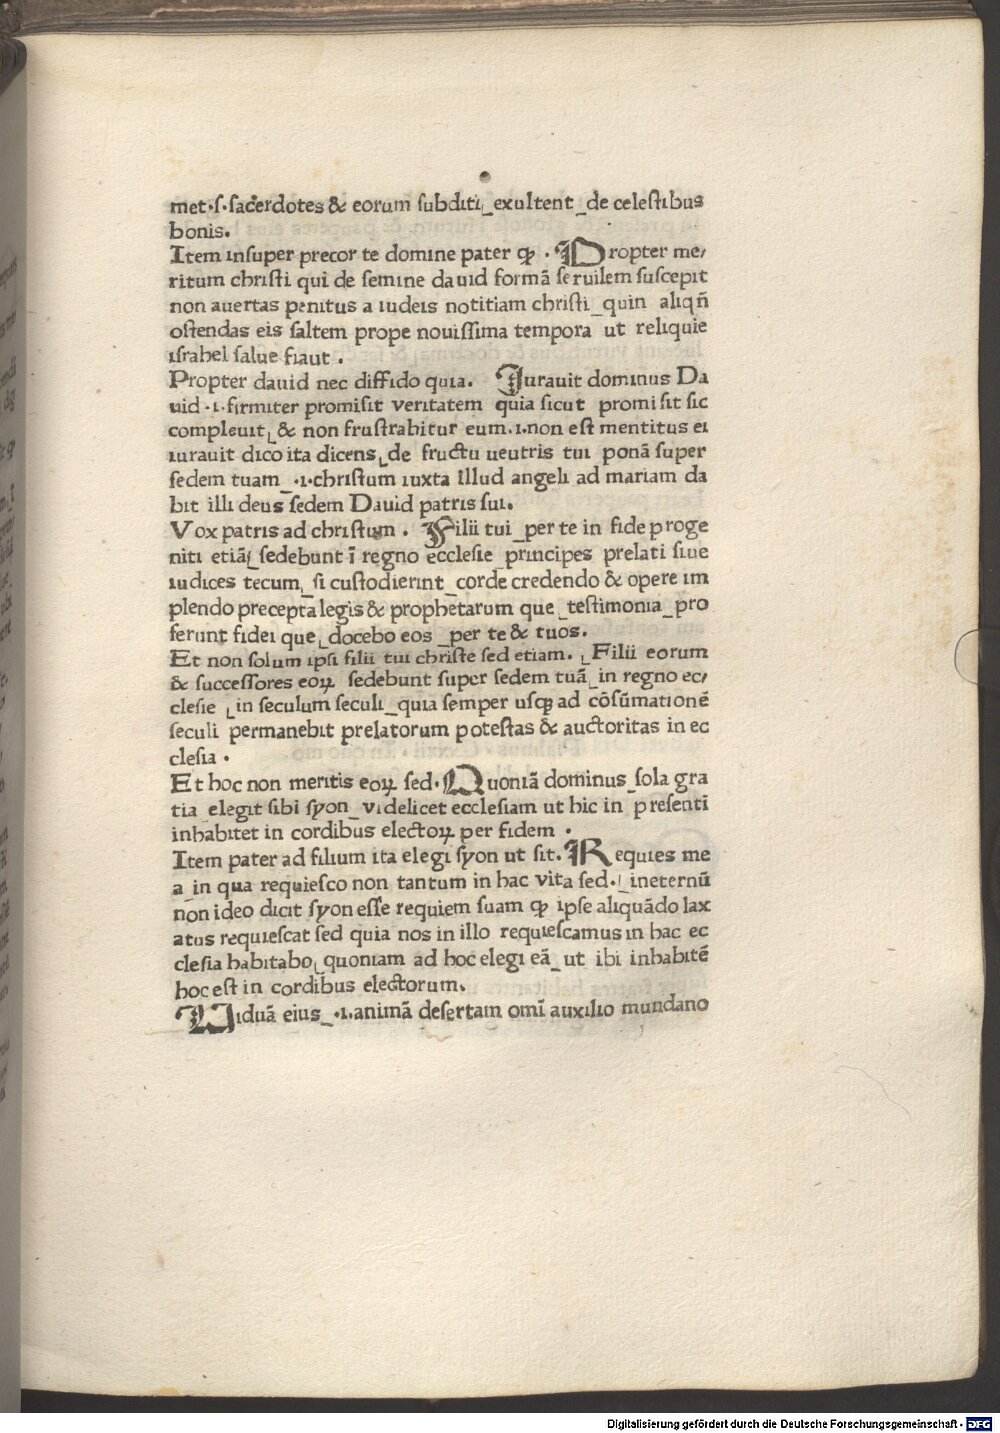 met·s·sacerdotes & eorum subditi_exultent_de celestibus
bonis.
Item insuper precor te domine pater ꝙ · Propter me/
ritum christi qui de semine dauid formā seruilem suscepit
non auertas penitus a iudeis notitiam christi_quin aliqñ
ostendas eis saltem prope nouissima tempora ut reliquie
israhel salue fiaut .
Propter dauid nec diffido quia. Jurauit dominus Da
uid·i·firmiter promisit veritatem quia sicut promisit sic
compleuit⌞& non frustrabitur eum.i.non est mentitus ei
iurauit dico ita dicens⌞de fructu ueutris tui ponā super
sedem tuam_·i·christum iuxta illud angeli ad mariam da
bit illi deus sedem Dauid patris sui.
Vox patris ad christum . Filii tui_per te in fide proge
niti etiā⌞sedebunt ī regno ecclesie principes prelati siue
iudices tecum_si custodierint_corde credendo & opere im
plendo precepta legis & prophetarum que_testimonia_pro
ferunt fidei que⌞docebo eos_per te & tuos.
Et non solum ipsi filii tui christe sed etiam. ⌞Filii eorum
& successores eoꝝ sedebunt super sedem tuā_in regno ec/
clesie ⌞in seculum seculi_quia semper usꝙ ad cōsūmationē
seculi permanebit prelatorum potestas & auctoritas in ec
clesia .
Et hoc non meritis eoꝝ sed·Quoniā dominus_sola gra
tia_elegit sibi syon_videlicet ecclesiam ut hic in presenti
inhabitet in cordibus electoꝝ per fidem .
Item pater ad filium ita elegi syon ut sit. Requies me
a_in qua requiesco non tantum in hac vita sed.⌞ineternū
non ideo dicit syon esse requiem suam ꝙ ipse aliquādo lax
atus requiescat sed quia nos in illo requiescamus in hac ec
clesia habitabo⌞quoniam ad hoc elegi eā_ut ibi inhabitē
hoc est in cordibus electorum.
Uiduā eius_·i.animā desertam omī auxilio mundano
Digitalisierung gefördert durch die Deutsche Forschungsgemeinschaft - DFG